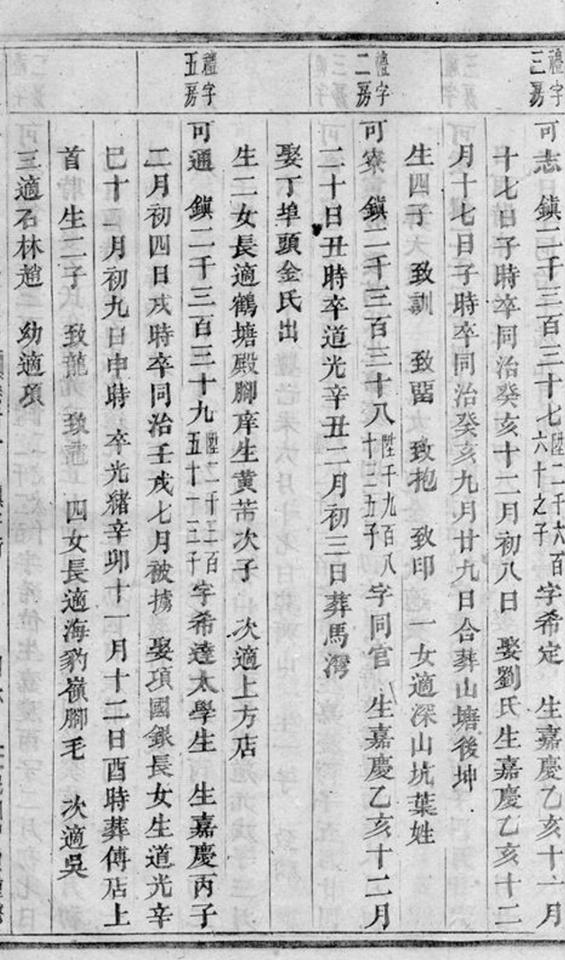 禮字三房
可志 鎮二千三百三十七陞二千六百六十之子字希定 生嘉慶乙亥十一月
十七日子時卒同治癸亥十二月初八日 娶劉氏生嘉慶乙亥十二
月十七日子時卒同治癸亥九月廿九日合葬山塘後坤
生四子 致訓 致畱 致抱 致印 一女適深山坑葉姓
禮字二房
可寮 鎮二千三百三十八陞千九百八十三五子字同官 生嘉慶乙亥十二月
二十日丑時卒道光辛丑二月初三日葬馬灣
娶丁埠頭金氏出
生三女長適鶴塘殿腳庠生黄芾次子 次適上方店
禮字五房
可通 鎮二千三百三十九陞二千三百五十一三子字希達太學生 生嘉慶丙子
二月初四日戌時卒同治壬戌七月被擄 娶項國銀長女生道光辛
巳十一月初九日申時 卒光豬辛卯十一月十二日酉時葬傅店上
首 生二子 致龍 致 四女長適海豹嶺腳毛 次適吳
三適石林趙 幼適項